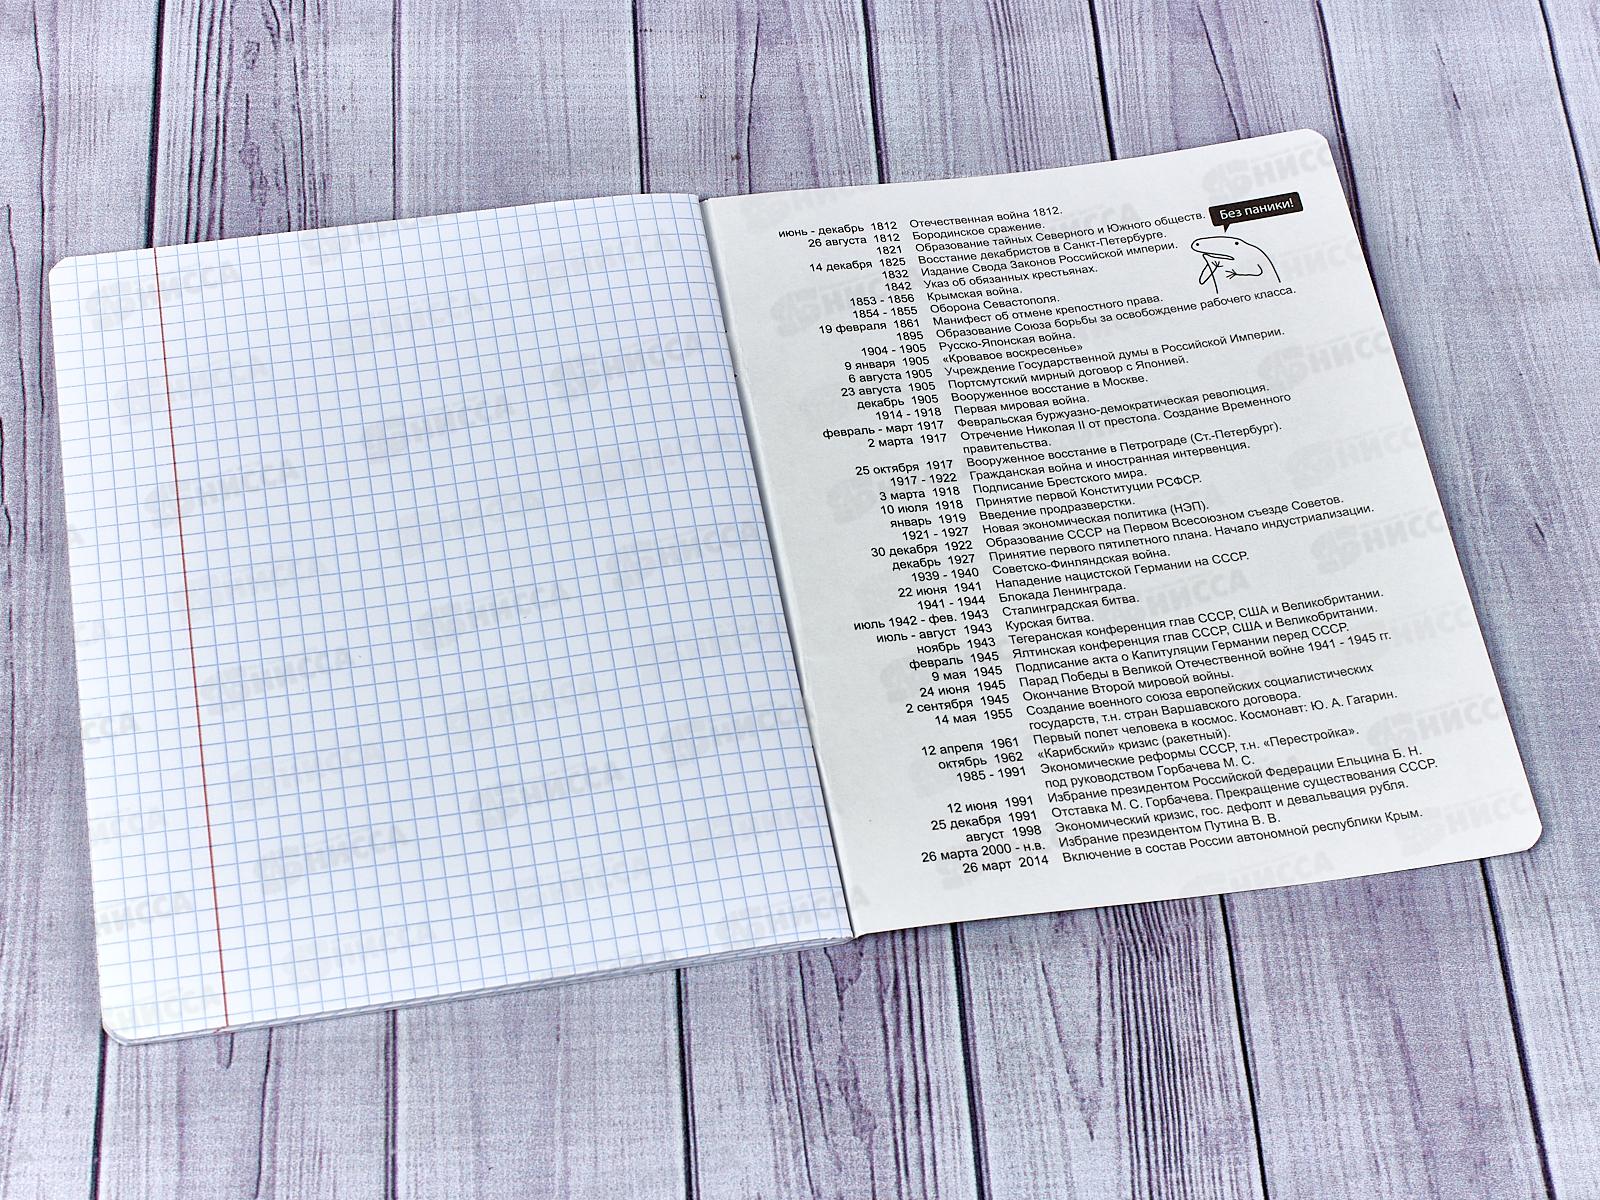 Без паники!
июнь - декабрь 1812 Отечественная война 1812.
26 августа 1812 Бородинское сражение.
1821 Образование тайных Северного и Южного обществ.
14 декабря 1825 Восстание декабристов в Санкт-Петербурге.
1832 Издание Свода Законов Российской империи.
1842 Указ об обязанных крестьянах.
1853 - 1856 Крымская война.
1854 - 1855 Оборона Севастополя.
19 февраля 1861 Манифест об отмене крепостного права.
1895 Образование Союза борьбы за освобождение рабочего класса.
1904 - 1905 Русско-Японская война.
9 января 1905 «Кровавое воскресенье»
6 августа 1905 Учреждение Государственной думы в Российской Империи.
23 августа 1905 Портсмутский мирный договор с Японией.
декабрь 1905 Вооруженное восстание в Москве.
1914 - 1918 Первая мировая война.
февраль - март 1917 Февральская буржуазно-демократическая революция.
2 марта 1917 Отречение Николая II от престола. Создание Временного
правительства.
25 октября 1917 Вооруженное восстание в Петрограде (Ст.-Петербург).
1917 - 1922 Гражданская война и иностранная интервенция.
3 марта 1918 Подписание Брестского мира.
10 июля 1918 Принятие первой Конституции РСФСР.
январь 1919 Введение продразверстки.
1921 - 1927 Новая экономическая политика (НЭП).
30 декабря 1922 Образование СССР на Первом Всесоюзном съезде Советов.
декабрь 1927 Принятие первого пятилетнего плана. Начало индустриализации.
1939 - 1940 Советско-Финляндская война.
22 июня 1941 Нападение нацистской Германии на СССР.
1941 - 1944 Блокада Ленинграда.
июль 1942 - фев. 1943 Сталинградская битва.
июль - август 1943 Курская битва.
ноябрь 1943 Тегеранская конференция глав СССР, США и Великобритании.
февраль 1945 Ялтинская конференция глав СССР, США и Великобритании.
9 мая 1945 Подписание акта о Капитуляции Германии перед СССР.
24 июня 1945 Парад Победы в Великой Отечественной войне 1941 - 1945 гг.
2 сентября 1945 Окончание Второй мировой войны.
14 мая 1955 Создание военного союза европейских социалистических
государств, т.н. стран Варшавского договора.
12 апреля 1961 Первый полет человека в космос. Космонавт: Ю. А. Гагарин.
октябрь 1962 «Карибский» кризис (ракетный).
1985 - 1991 Экономические реформы СССР, т.н. «Перестройка».
под руководством Горбачева М. С.
12 июня 1991 Избрание президентом Российской Федерации Ельцина Б. Н.
25 декабря 1991 Отставка М. С. Горбачева. Прекращение существования СССР.
август 1998 Экономический кризис, гос. дефолт и девальвация рубля.
26 марта 2000 - н.в. Избрание президентом Путина В. В.
26 март 2014 Включение в состав России автономной республики Крым.